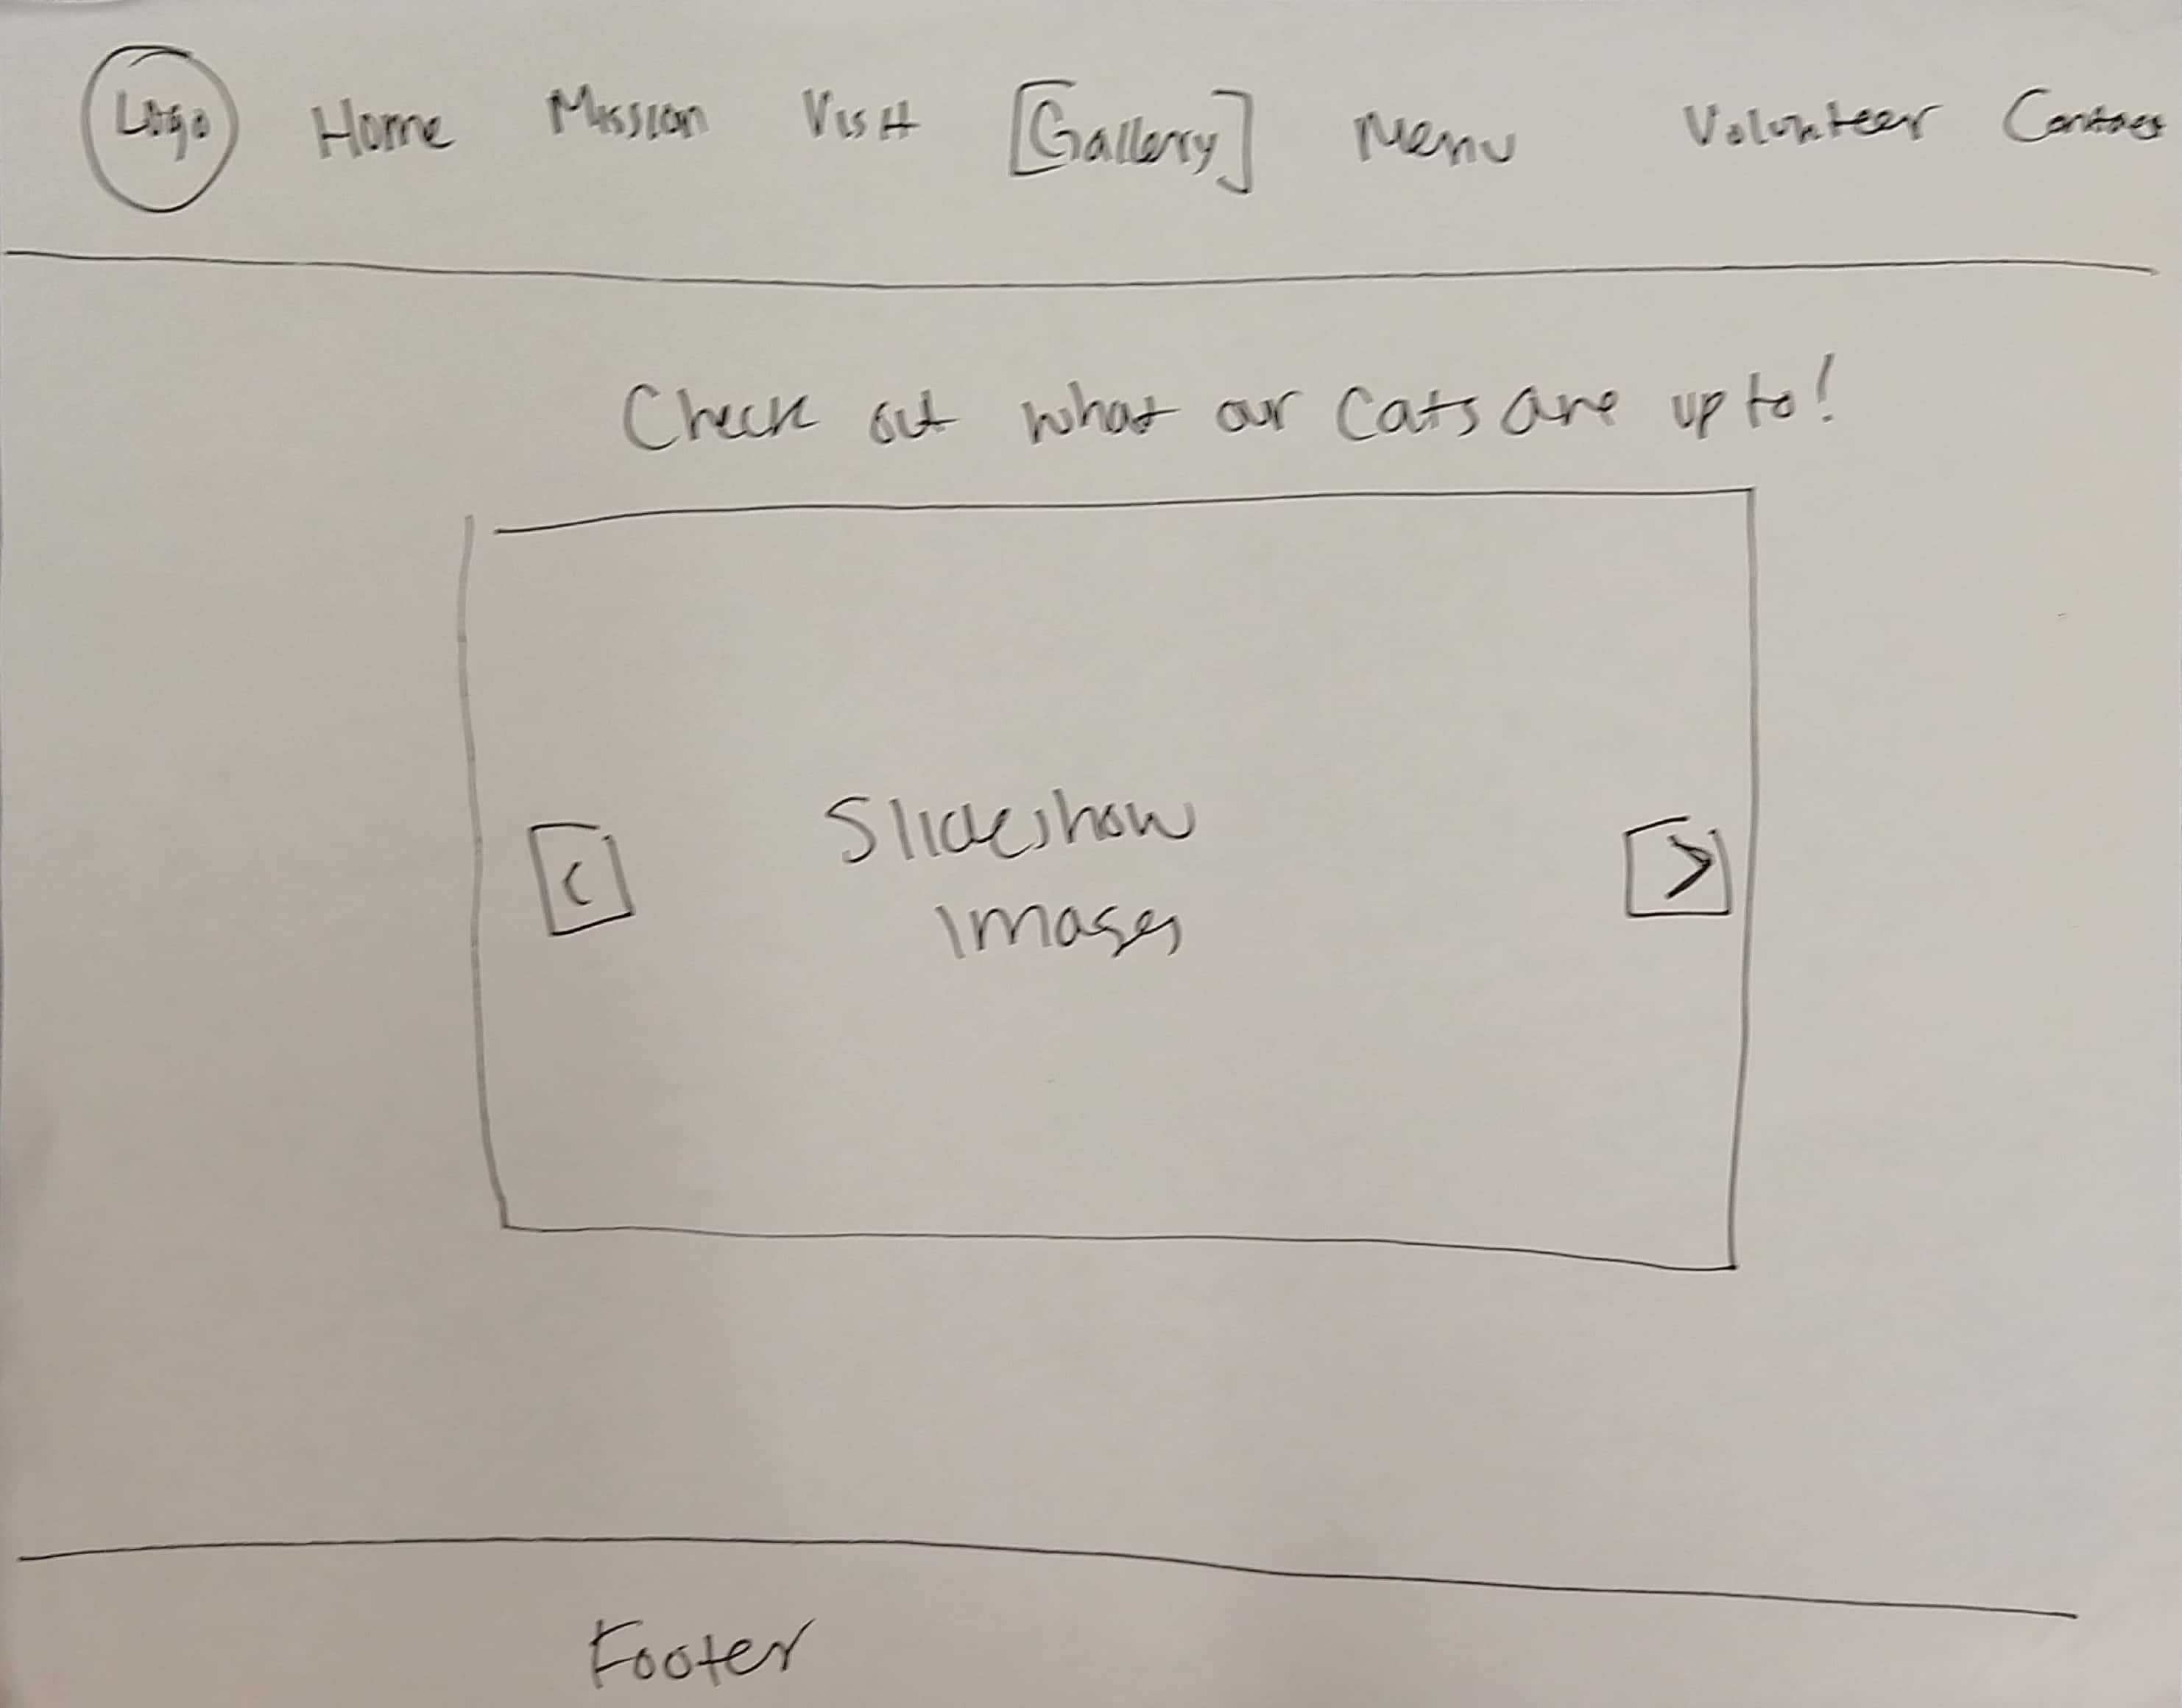 Logo Home Mission Visit [Gallery] Menu Volunteer Contact
Check out what our cats are up to!
< Slideshow >
Images
Footer